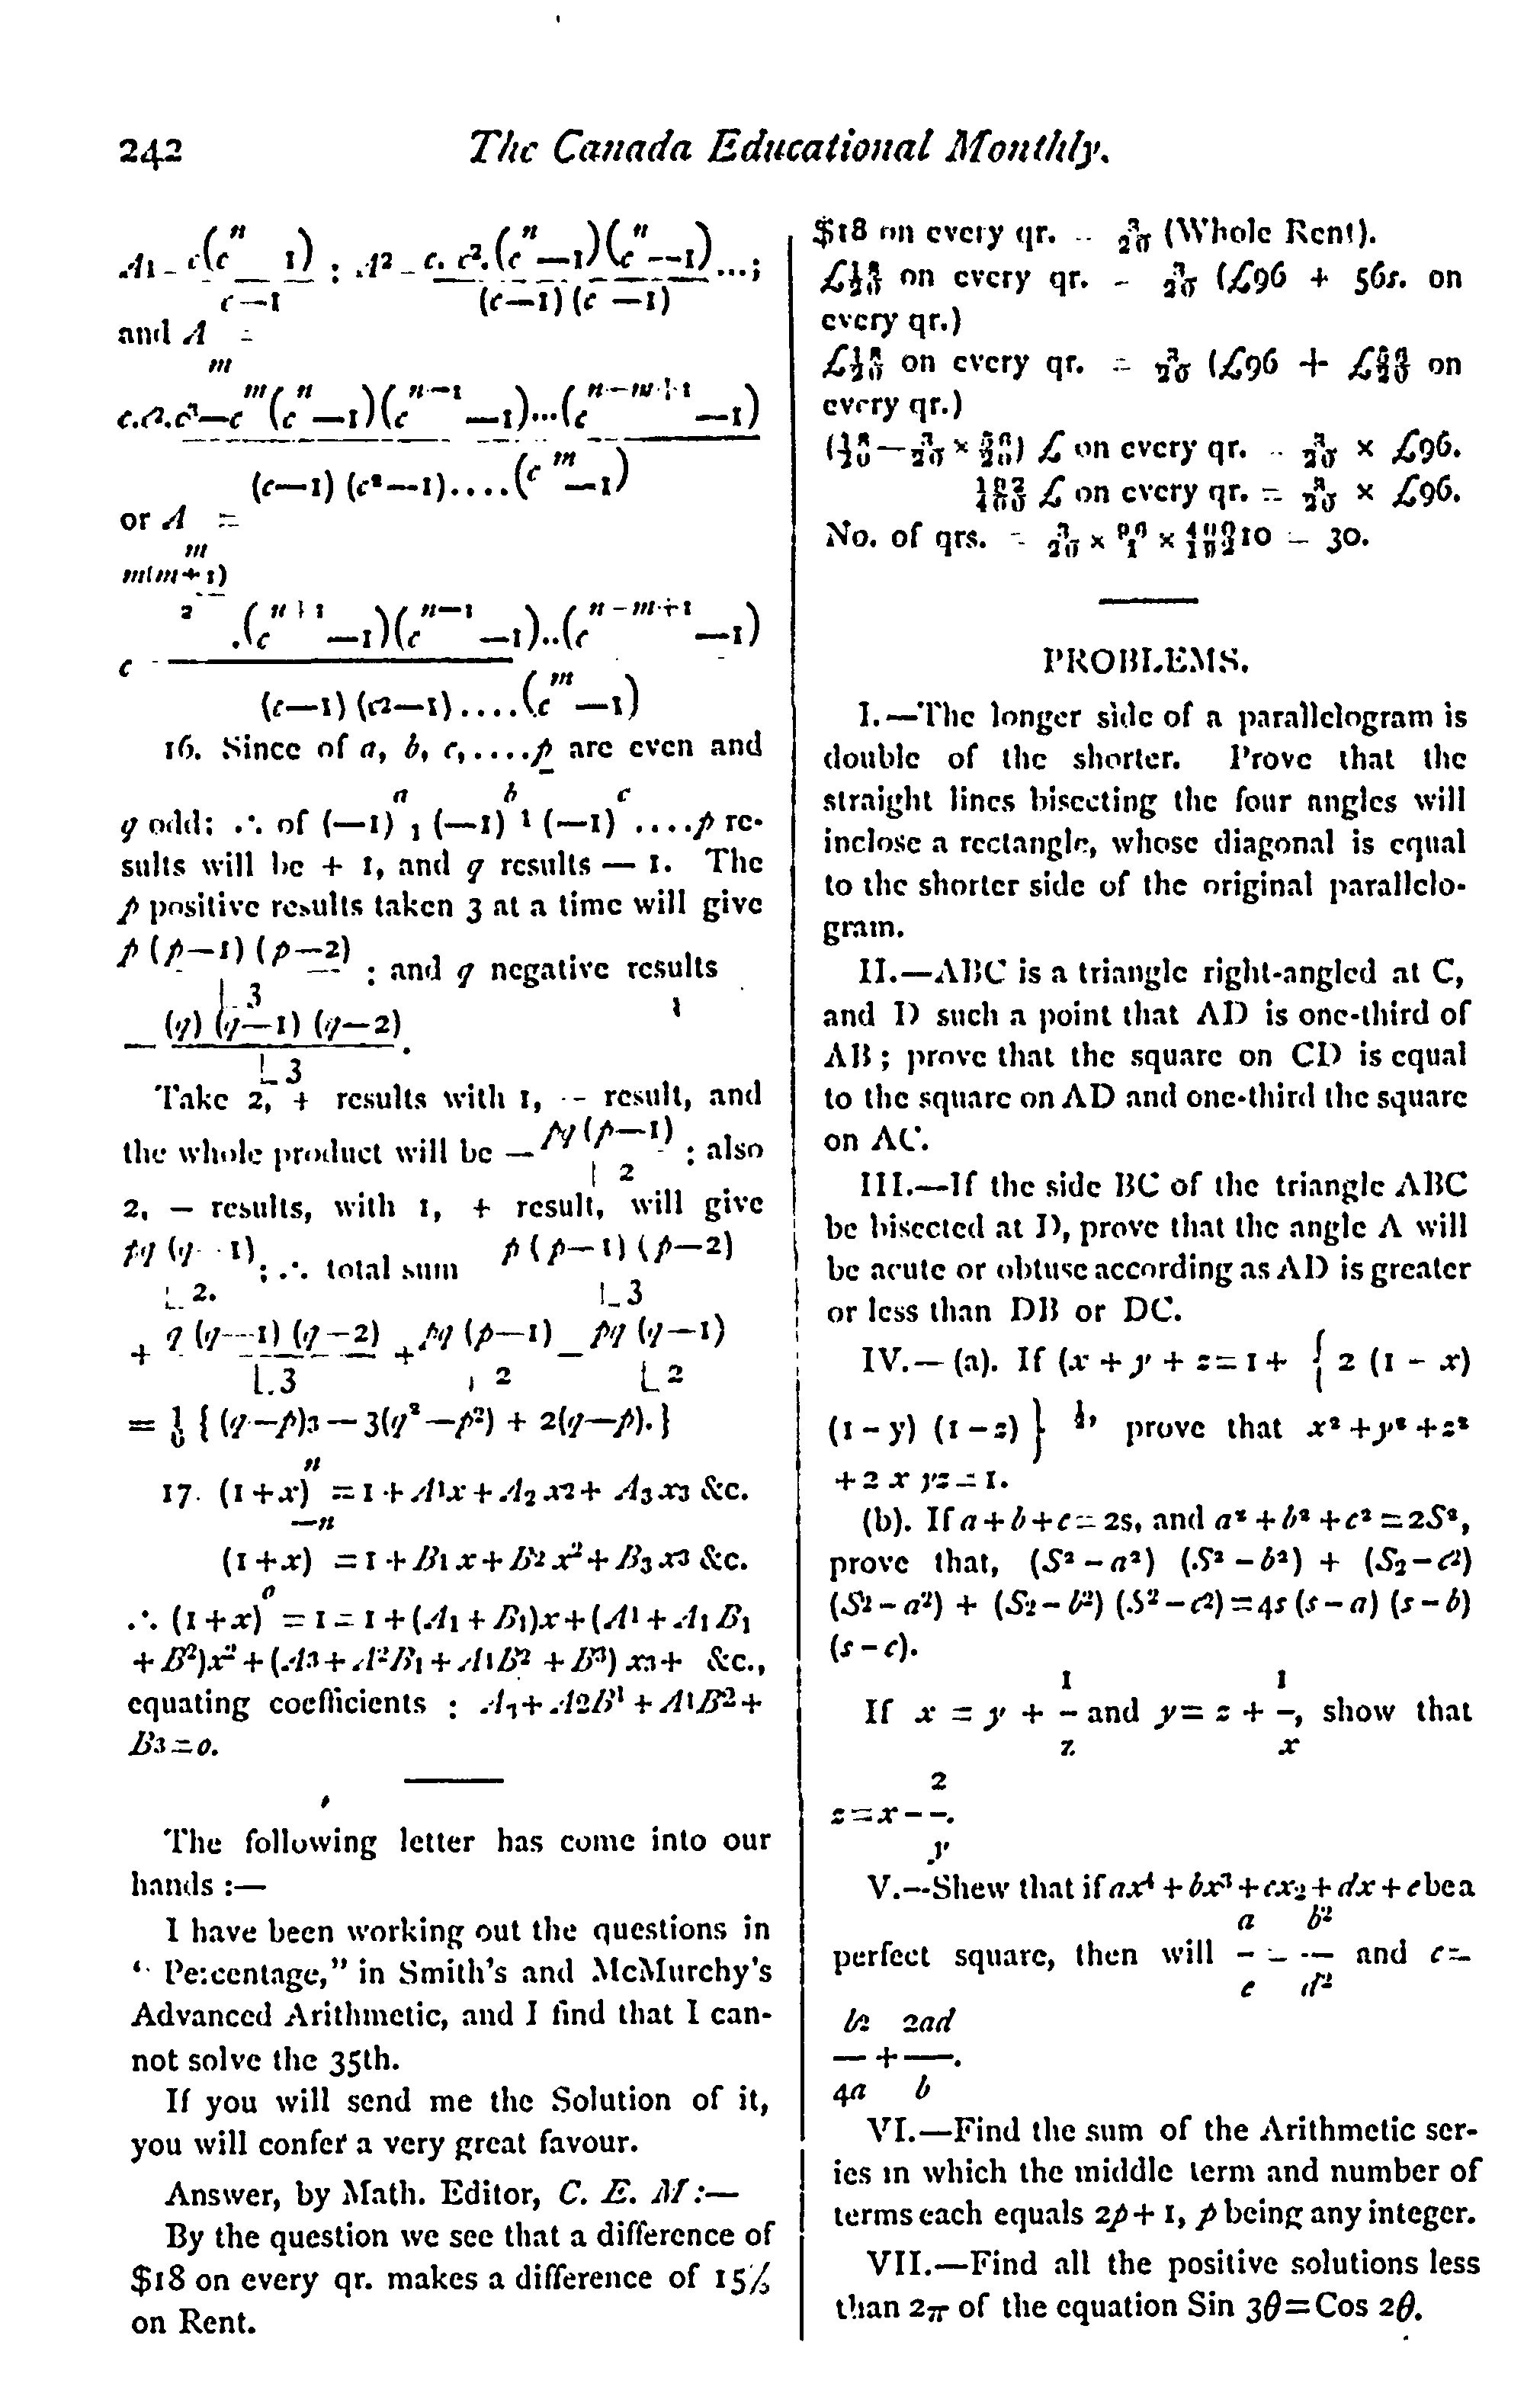 242
The Canada Educational Monthly.
and A =
m
(c—1) (c²—1)....(c^m—1)
or A =
m
m(m+1)
2
c
(c—1) (c2—1)....(c^m—1)
16. Since of a, b, c,....p are even and
a b c
q odd; ∴ of (—1) , (—1) , (—1) ....p re-
sults will be + 1, and q results — 1. The
p positive results taken 3 at a time will give
p (p—1) (p—2)
; and q negative results
⌊3
— (q) (q—1) (q—2)
.
⌊3
Take 2, + results with 1, -- result, and
the whole product will be — pq(p—1) ; also
| 2
2, — results, with 1, + result, will give
pq (q--1) ; ∴ total sum p (p—1) (p—2)
⌊2. ⌊3
+ q (q—1) (q—2) + pq (p—1) — pq (q—1)
⌊3 | 2 ⌊2
= ⅙ { (q—p)3 — 3(q²—p²) + 2(q—p). }
n
17. (1+x) = 1 + A1x + A2 x2 + A3 x3 &c.
—n
(1+x) = 1 + B1 x + B2 x² + B3 x3 &c.
o
∴ (1+x) = 1 = 1 + (A1 + B1)x + (A1 + A1 B1
+ B²)x² + (A3 + A²B1 + A1B² + B³) x3 + &c.,
equating coefficients : A3 + A2B1 + A1B2 +
B3 = o.
The following letter has come into our
hands :—
I have been working out the questions in
" Percentage," in Smith's and McMurchy's
Advanced Arithmetic, and I find that I can-
not solve the 35th.
If you will send me the Solution of it,
you will confer a very great favour.
Answer, by Math. Editor, C. E. M :—
By the question we see that a difference of
$18 on every qr. makes a difference of 15%
on Rent.
$18 on every qr. = 3/20 (Whole Rent).
£18/20 on every qr. = 3/20 (£96 + 56s. on
every qr.)
£18/20 on every qr. = 3/20 (£96 + £56/20 on
every qr.)
(18/20 — 3/20 × 56/20) £ on every qr. = 3/20 × £96.
192/400 £ on every qr. = 3/20 × £96.
No. of qrs. = 3/20 × 96/1 × 400/192 10 = 30.
PROBLEMS.
I.—The longer side of a parallelogram is
double of the shorter. Prove that the
straight lines bisecting the four angles will
inclose a rectangle, whose diagonal is equal
to the shorter side of the original parallelo-
gram.
II.—ABC is a triangle right-angled at C,
and D such a point that AD is one-third of
AB ; prove that the square on CD is equal
to the square on AD and one-third the square
on AC.
III.—If the side BC of the triangle ABC
be bisected at D, prove that the angle A will
be acute or obtuse according as AD is greater
or less than DB or DC.
IV.—(a). If (x + y + z = 1 + { 2 (1 - x)
(1 - y) (1 - z) } ½, prove that x² + y² + z²
+ 2 x yz = 1.
(b). If a + b + c = 2s, and a² + b² + c² = 2S²,
prove that, (S² - a²) (S² - b²) + (S2 - c²)
(S² - a²) + (S2 - b²) (S² - c²) = 4s (s - a) (s - b)
(s - c).
1 1
If x = y + - and y = z + -, show that
z x
2
z = x - -.
y
V.—Shew that if ax⁴ + bx³ + cx2 + dx + e be a
a b²
perfect square, then will - = — and c =
e d²
b2 2ad
— + —.
4a b
VI.—Find the sum of the Arithmetic ser-
ies in which the middle term and number of
terms each equals 2p + 1, p being any integer.
VII.—Find all the positive solutions less
than 2π of the equation Sin 3θ = Cos 2θ.